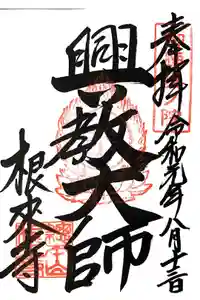 奉拝 令和元年八月十三日
興教大師
根来寺